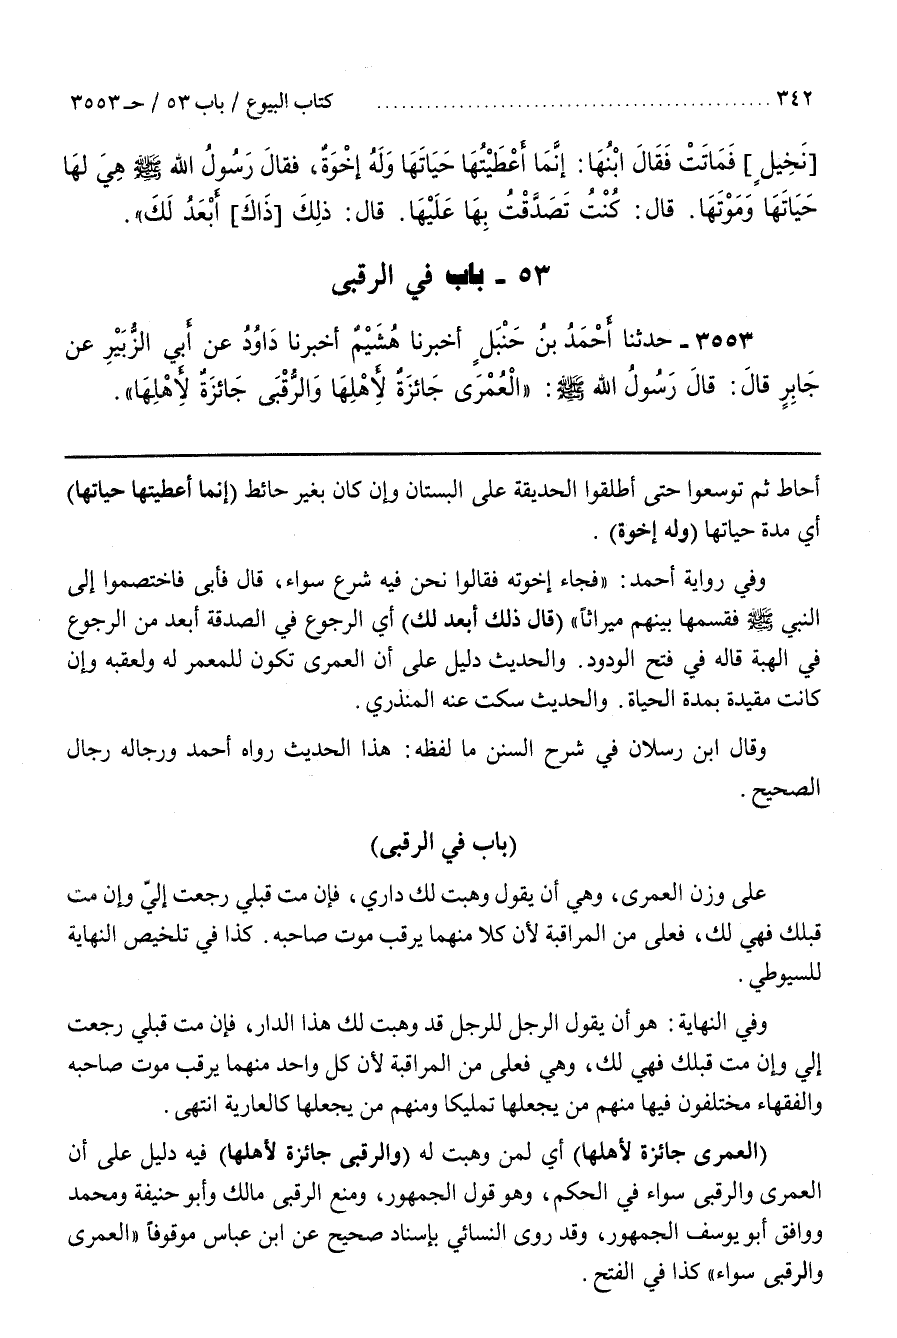 ٣٤٢ ........................................ كتاب البيوع / باب ٥٣ / حـ ٣٥٥٣
[نَخِيلٍ] فَمَاتَتْ فَقَالَ ابْنُهَا: إنَّمَا أَعْطَيْتُهَا حَيَاتَهَا وَلَهُ إخْوَةٌ، فقالَ رَسُولُ الله ﷺ هِيَ لهَا
حَيَاتَهَا وَمَوْتَهَا. قال: كُنْتُ تَصَدَّقْتُ بِهَا عَلَيْهَا. قال: ذلِكَ [ذَاكَ] أَبْعَدُ لَكَ».
٥٣ ـ باب في الرقبى
٣٥٥٣ ـ حدثنا أَحْمَدُ بنُ حَنْبَلٍ أخبرنا هُشَيْمٌ أخبرنا دَاوُدُ عن أَبي الزُّبَيْرِ عن
جَابِرٍ قالَ: قالَ رَسُولُ الله ﷺ: «الْعُمْرَى جَائِزَةٌ لِأَهْلِهَا وَالرُّقْبَى جَائِزَةٌ لِأَهْلِهَا».
أحاط ثم توسعوا حتى أطلقوا الحديقة على البستان وإن كان بغير حائط (إنما أعطيتها حياتها)
أي مدة حياتها (وله إخوة) .
وفي رواية أحمد: «فجاء إخوته فقالوا نحن فيه شرع سواء، قال فأبى فاختصموا إلى
النبي ﷺ فقسمها بينهم ميراثاً» (قال ذلك أبعد لك) أي الرجوع في الصدقة أبعد من الرجوع
في الهبة قاله في فتح الودود. والحديث دليل على أن العمرى تكون للمعمر له ولعقبه وإن
كانت مقيدة بمدة الحياة. والحديث سكت عنه المنذري.
وقال ابن رسلان في شرح السنن ما لفظه: هذا الحديث رواه أحمد ورجاله رجال
الصحيح.
(باب في الرقبى)
على وزن العمرى، وهي أن يقول وهبت لك داري، فإن مت قبلي رجعت إليّ وإن مت
قبلك فهي لك، فعلى من المراقبة لأن كلا منهما يرقب موت صاحبه. كذا في تلخيص النهاية
للسيوطي.
وفي النهاية: هو أن يقول الرجل للرجل قد وهبت لك هذا الدار، فإن مت قبلي رجعت
إلي وإن مت قبلك فهي لك، وهي فعلى من المراقبة لأن كل واحد منهما يرقب موت صاحبه
والفقهاء مختلفون فيها منهم من يجعلها تمليكا ومنهم من يجعلها كالعارية انتهى.
(العمرى جائزة لأهلها) أي لمن وهبت له (والرقبى جائزة لأهلها) فيه دليل على أن
العمرى والرقبى سواء في الحكم، وهو قول الجمهور، ومنع الرقبى مالك وأبو حنيفة ومحمد
ووافق أبو يوسف الجمهور، وقد روى النسائي بإسناد صحيح عن ابن عباس موقوفاً «العمرى
والرقبى سواء» كذا في الفتح.